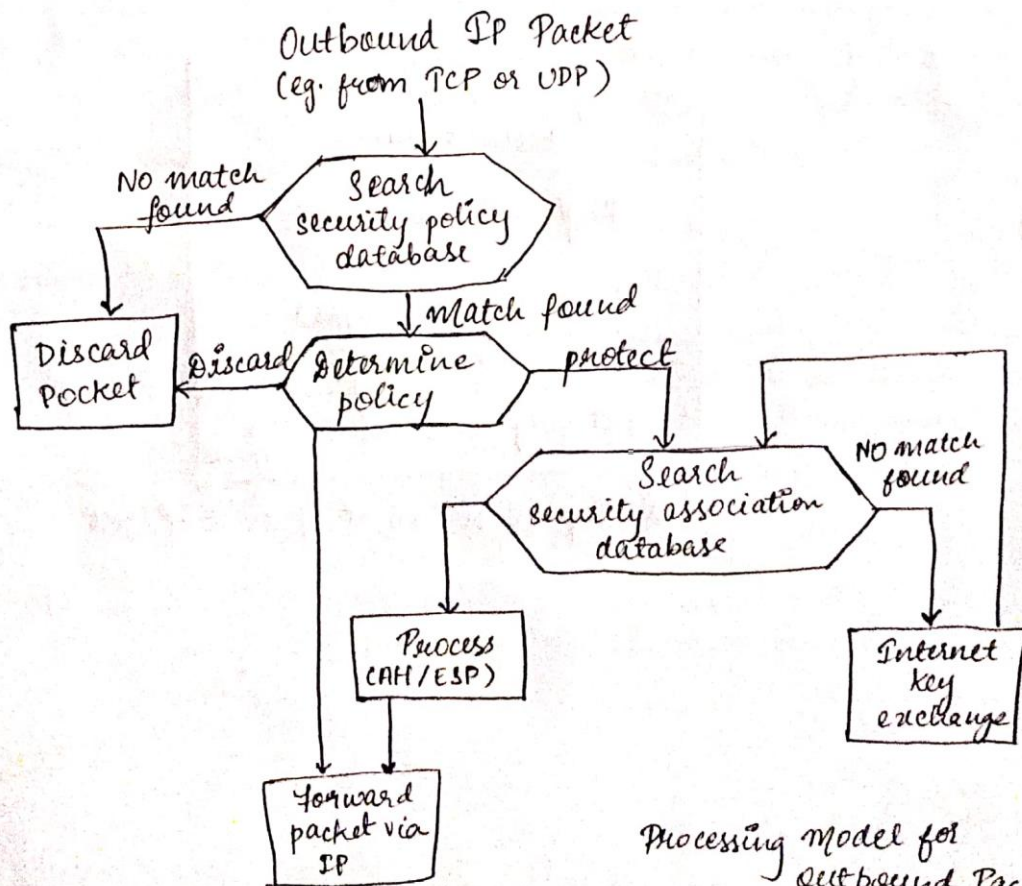 Outbound IP Packet
(eg. from TCP or UDP)
No match
found
Search
security policy
database
Match found
Discard
Pocket
Discard
Determine
policy
protect
Search
security association
database
NO match
found
Process
(AH/ESP)
Internet
key
exchange
Forward
packet via
IP
Processing Model for
outbound Pac